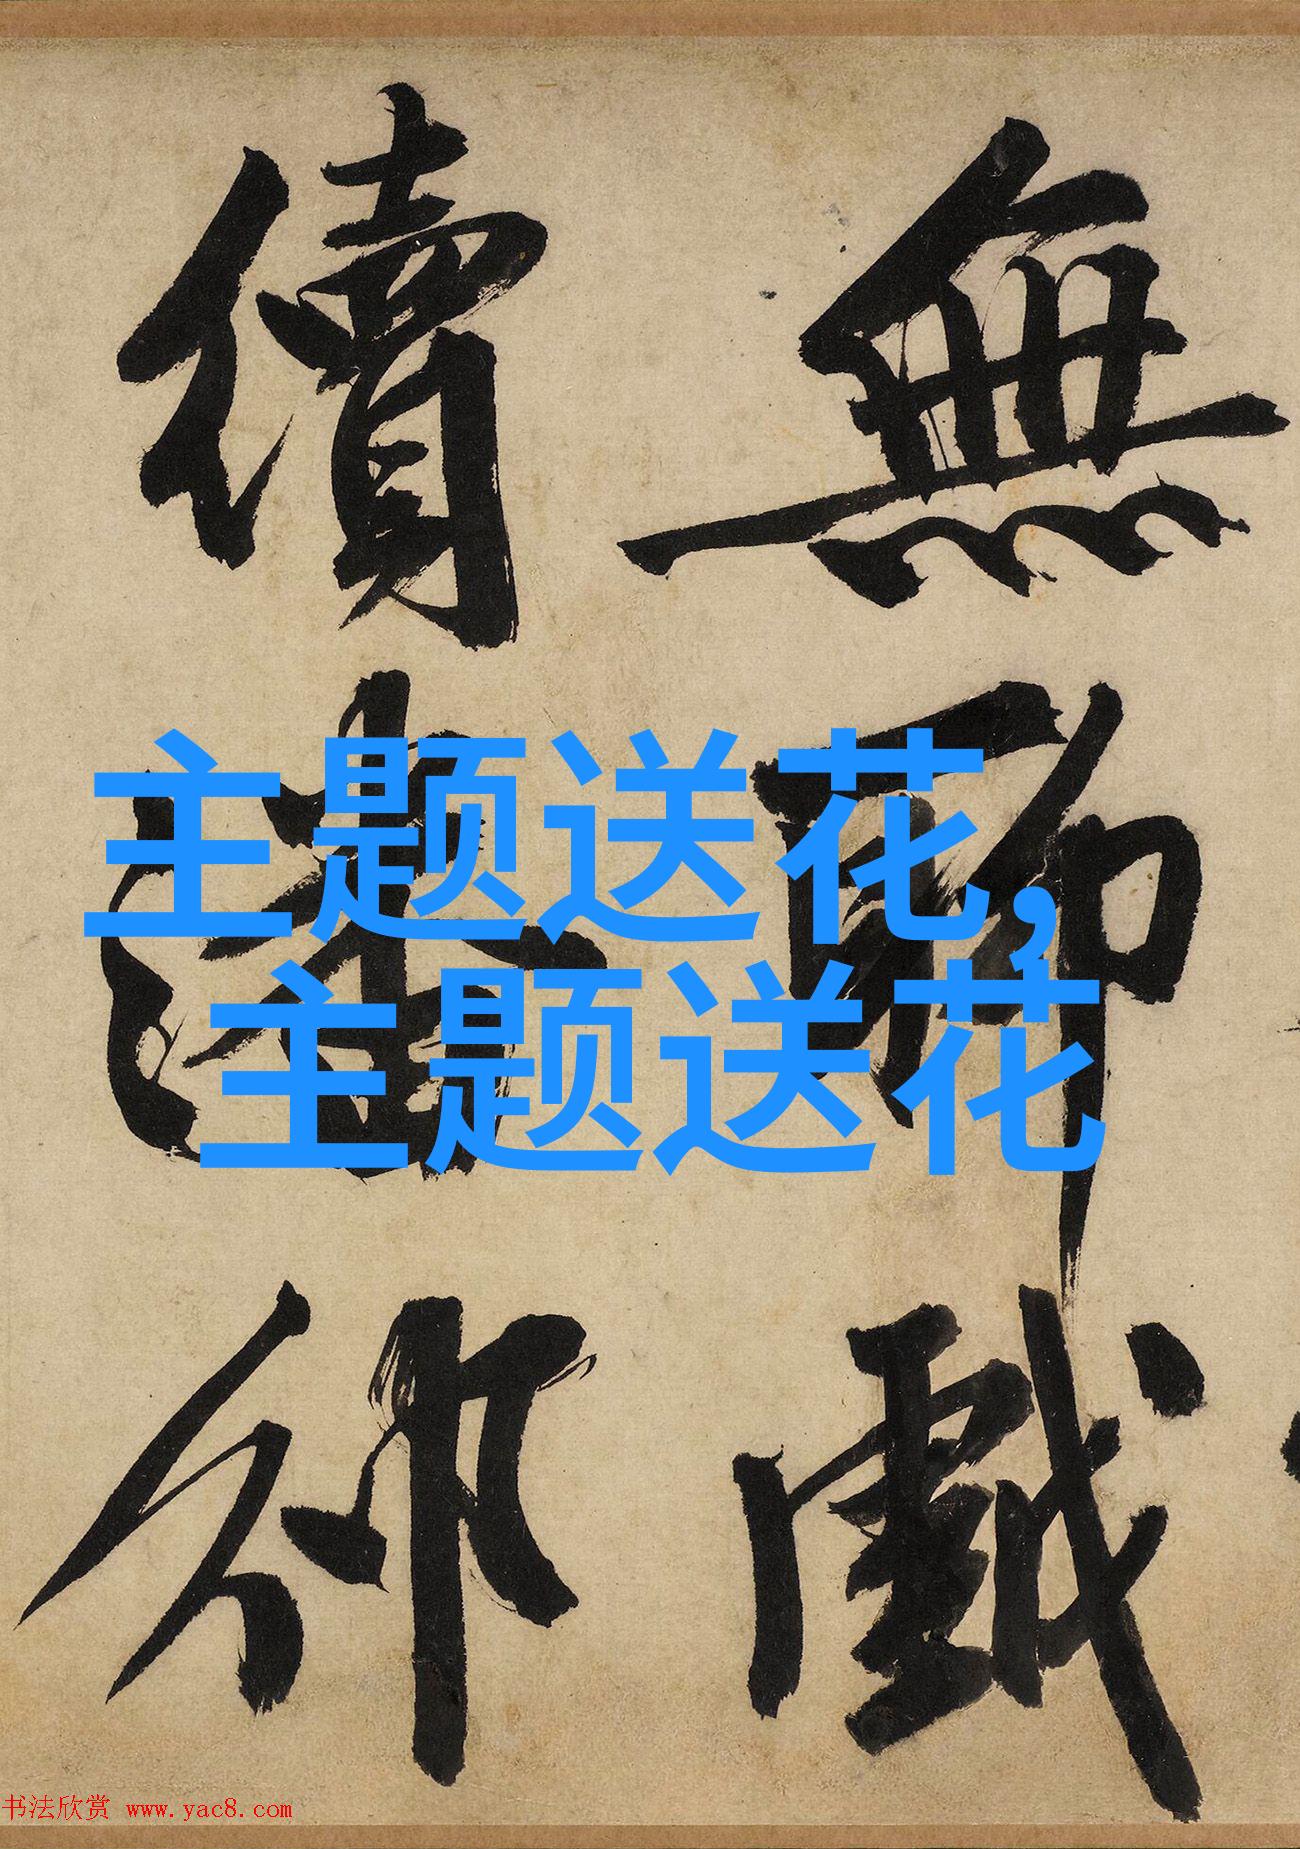 無聊戲
續潘邠
主题送花,
主题送花
书法欣赏 www.yac8.com